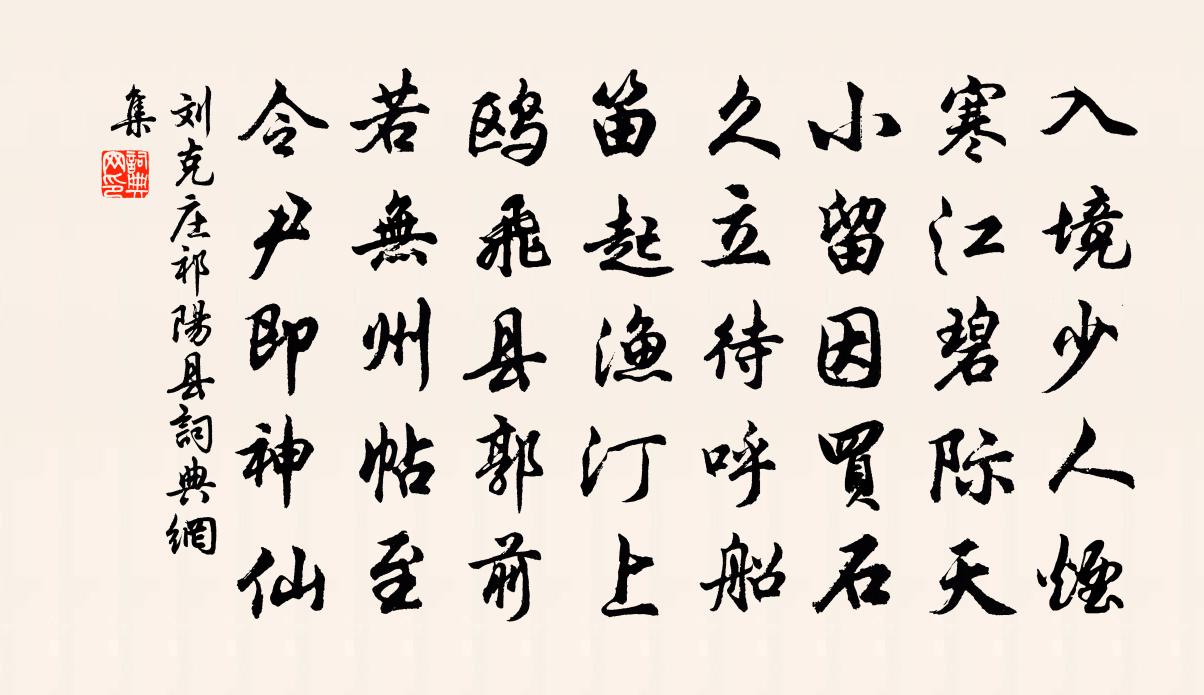 入境少人煙
寒江碧际天
小留因買石
久立待呼船
笛起漁汀上
鸥飛县郭前
若無州帖至
令尹即神仙
刘克庄祁陽县詞典網
集
詞典
网印